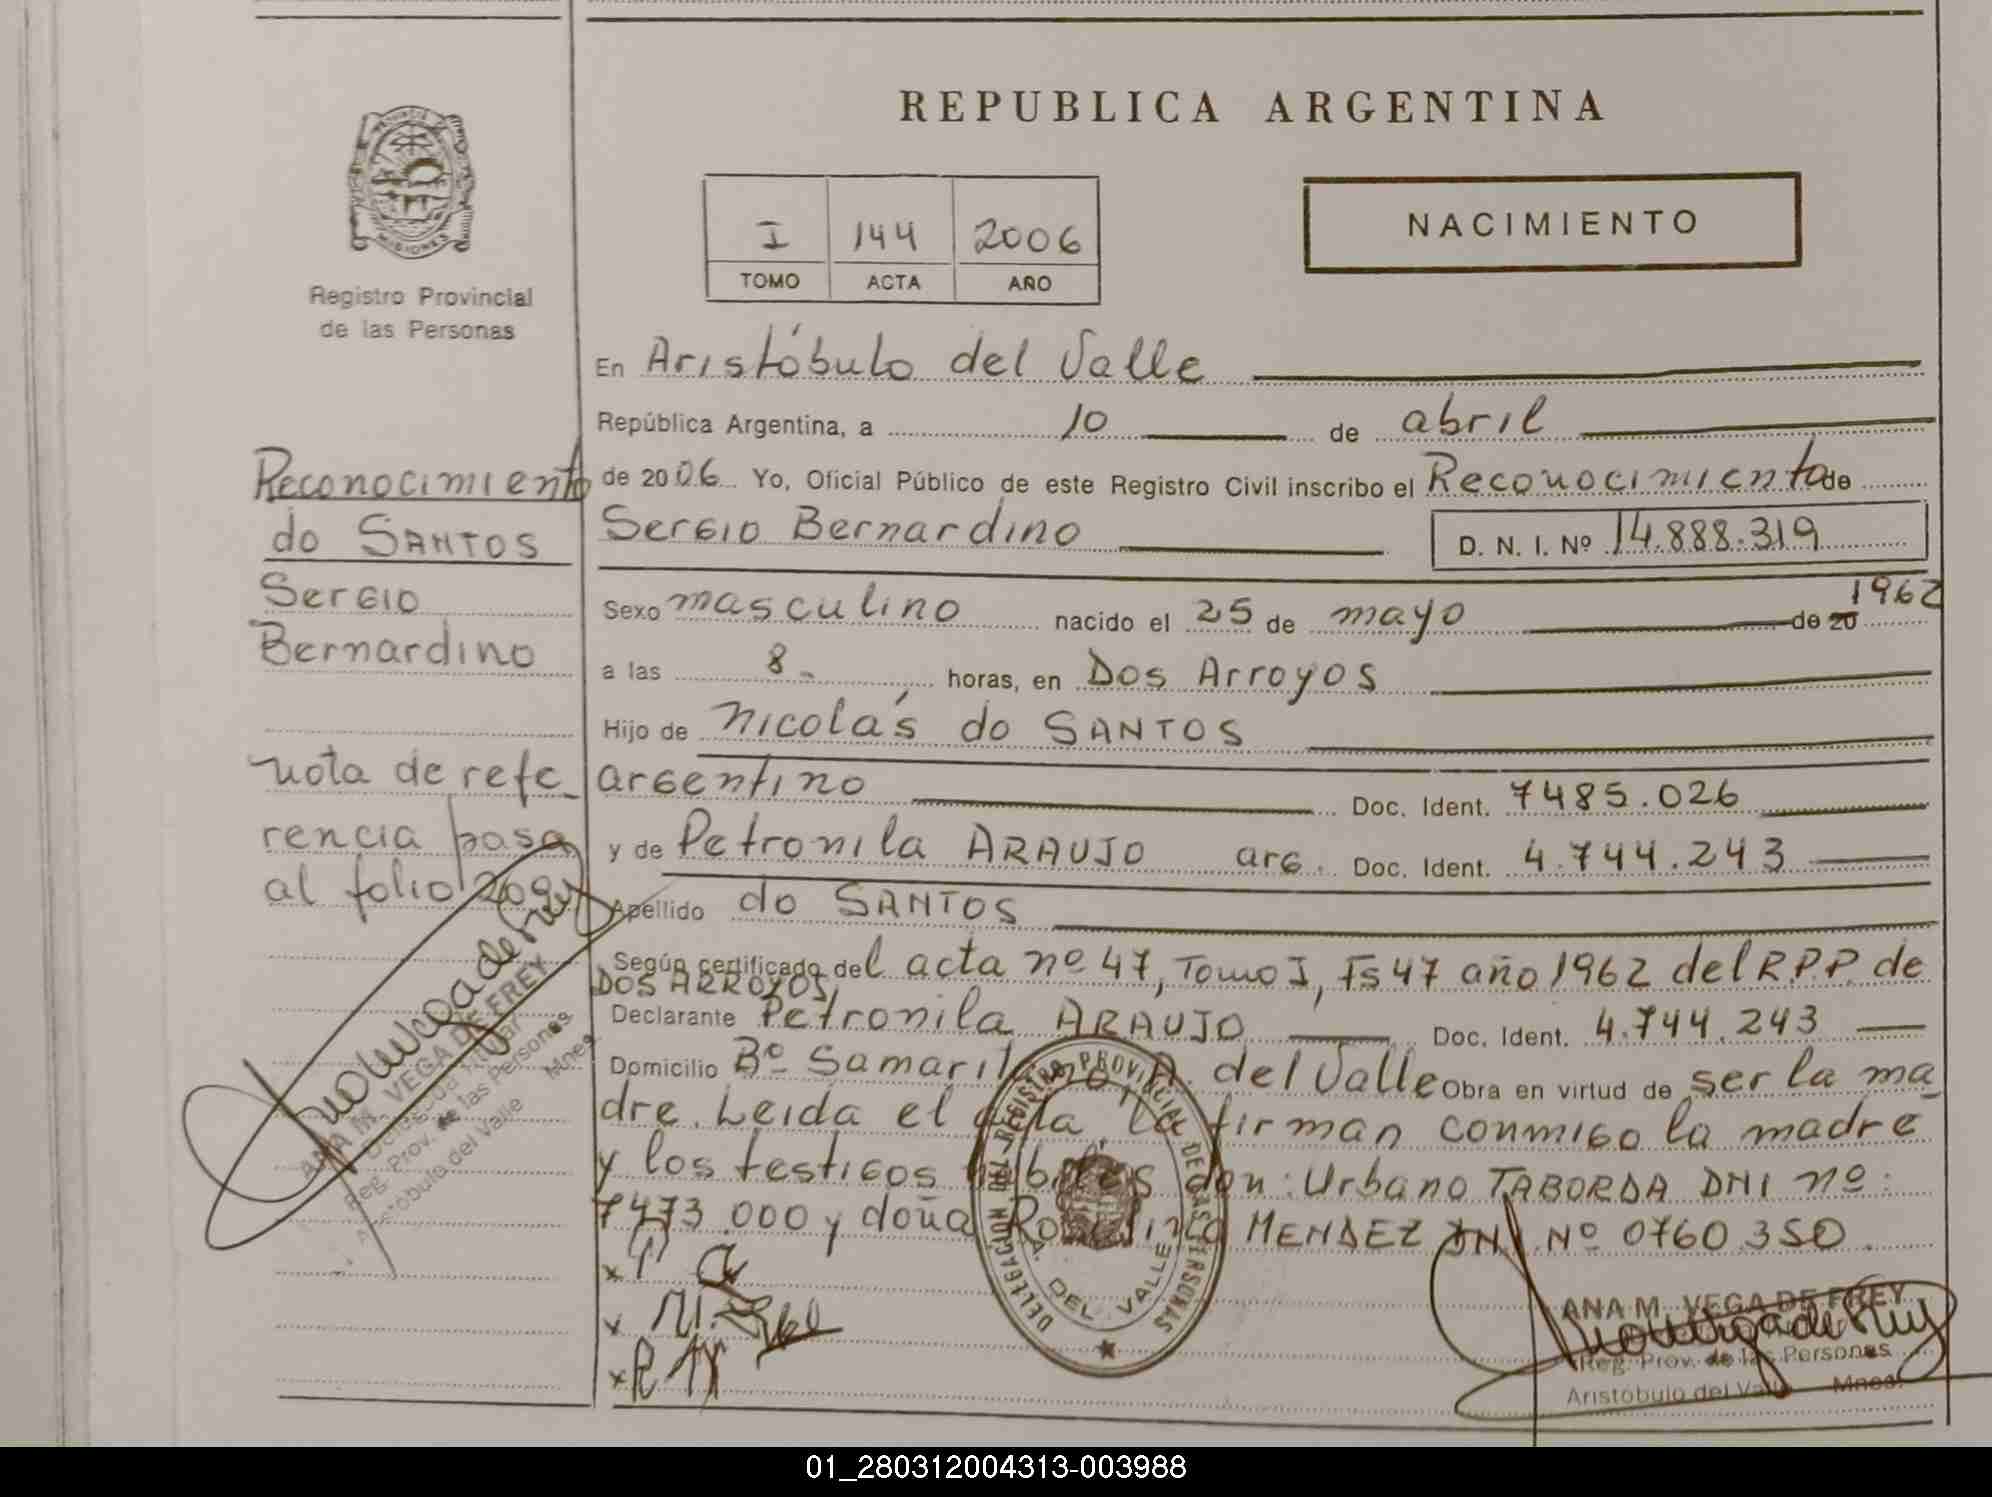 REPUBLICA ARGENTINA
NACIMIENTO
I 144 2006
TOMO ACTA AÑO
MISIONES
Registro Provincial
de las Personas
Reconocimiento
do SANTOS
Sergio
Bernardino
nota de refe_
rencia pasa
al folio 209
ANA M. VEGA DE FREY
Delegada Titular
Reg. Prov. de las Personas
Aristóbulo del Valle Mnes.
En Aristóbulo del Valle
República Argentina, a 10 de abril
de 2006 Yo, Oficial Público de este Registro Civil inscribo el Reconocimiento de
Sergio Bernardino D. N. I. Nº 14.888.319
Sexo masculino nacido el 25 de mayo de 20 1962
a las 8 horas, en Dos Arroyos
Hijo de Nicolás do SANTOS
argentino Doc. Ident. 7485.026
y de Petronila ARAUJO arg. Doc. Ident. 4.744.243
Apellido do SANTOS
Según certificado del acta nº 47, Tomo I, Fs 47 año 1962 del R.P.P. de
DOS ARROYOS
Declarante Petronila ARAUJO Doc. Ident. 4.744.243
Domicilio Bº Samaritano A. del Valle Obra en virtud de ser la ma_
dre. Leída el acta la firman conmigo la madre
y los testigos hábiles don: Urbano TABORDA DNI nº
7473.000 y doña MENDEZ DNI Nº 0760.350
DELEGACION DEL REGISTRO PROVINCIAL DE LAS PERSONAS
A. DEL VALLE
ANA M. VEGA DE FREY
Reg. Prov. de las Personas
Aristóbulo del Valle Mnes.
01_280312004313-003988